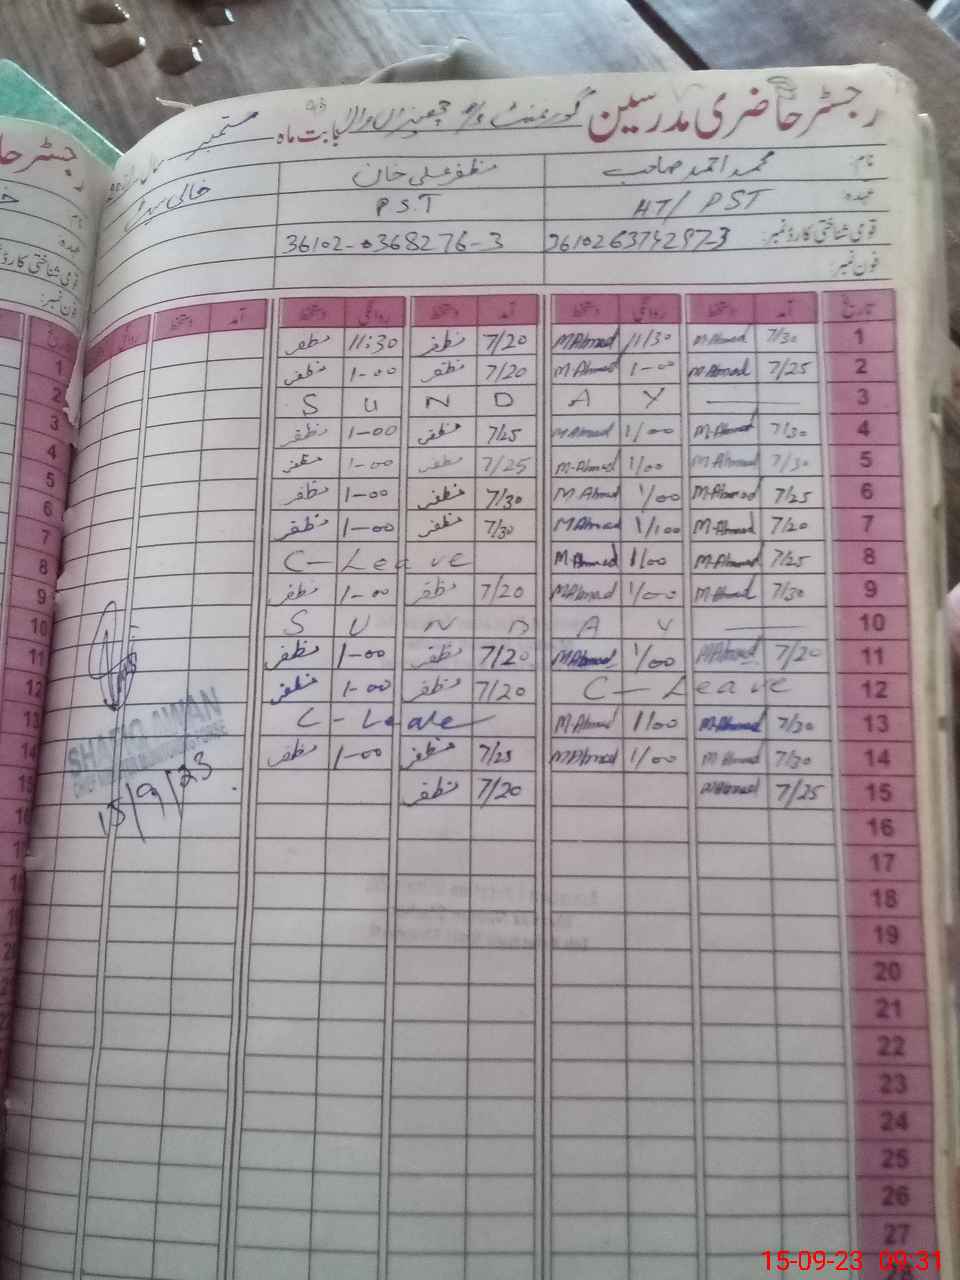 رجسٹر حاضری مدرسین گورنمنٹ بابت ماہ ستمبر
نام: محمد احمد صاحب مظفر علی خان خالی سیٹ
عہدہ HT/ PST P.S.T
قومی شناختی کارڈ نمبر: 36102-0368276-3
فون نمبر:
تاریخ آمد دستخط روانگی دستخط آمد دستخط روانگی دستخط آمد دستخط روانگی
1 7/30 M.Ahmad 11/30 M.Ahmad 7/20 مظفر 11:30 مظفر
2 7/25 M.Ahmad 1-00 M.Ahmad 7/20 مظفر 1-00 مظفر
3 S U N D A Y
4 7/30 M.Ahmad 1/00 M.Ahmad 7/25 مظفر 1-00 مظفر
5 7/30 M.Ahmad 1/00 M.Ahmad 7/25 مظفر 1-00 مظفر
6 7/25 M.Ahmad 1/00 M.Ahmad 7/30 مظفر 1-00 مظفر
7 7/20 M.Ahmad 1/00 M.Ahmad 7/30 مظفر 1-00 مظفر
8 7/25 M.Ahmad 1/00 M.Ahmad C-Leave
9 7/30 M.Ahmad 1/00 M.Ahmad 7/20 مظفر 1-00 مظفر
10 S U N D A Y
11 7/20 M.Ahmad 1/00 M.Ahmad 7/20 مظفر 1-00 مظفر
12 C-Leave 7/20 مظفر 1-00 مظفر
13 7/30 M.Ahmad 1/00 M.Ahmad C-Leave
14 7/30 M.Ahmad 1/00 M.Ahmad 7/25 مظفر 1-00 مظفر
15 7/25 M.Ahmad 7/20 مظفر
16
17
18
19
20
21
22
23
24
25
26
27
SHAFIQ AWAN
15/9/23
15-09-23 09:31